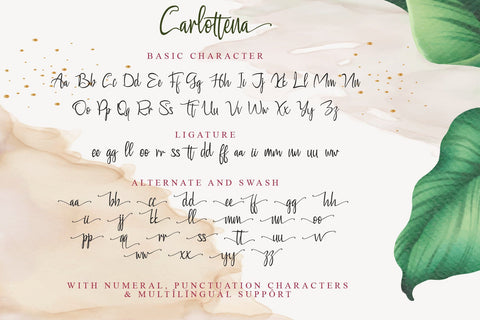 Carlottena
BASIC CHARACTER
Aa Bb Cc Dd Ee Ff Gg Hh Ii Jj Kk Ll Mm Nn
Oo Pp Qq Rr Ss Tt Uu Vv Ww Xx Yy Zz
LIGATURE
ee gg ll oo rr ss tt dd ff aa ii mm nn uu ww
ALTERNATE AND SWASH
aa bb cc dd ee ff gg hh
ii jj kk ll mm nn oo
pp qq rr ss tt uu vv
ww xx yy zz
WITH NUMERAL, PUNCTUATION CHARACTERS
& MULTILINGUAL SUPPORT